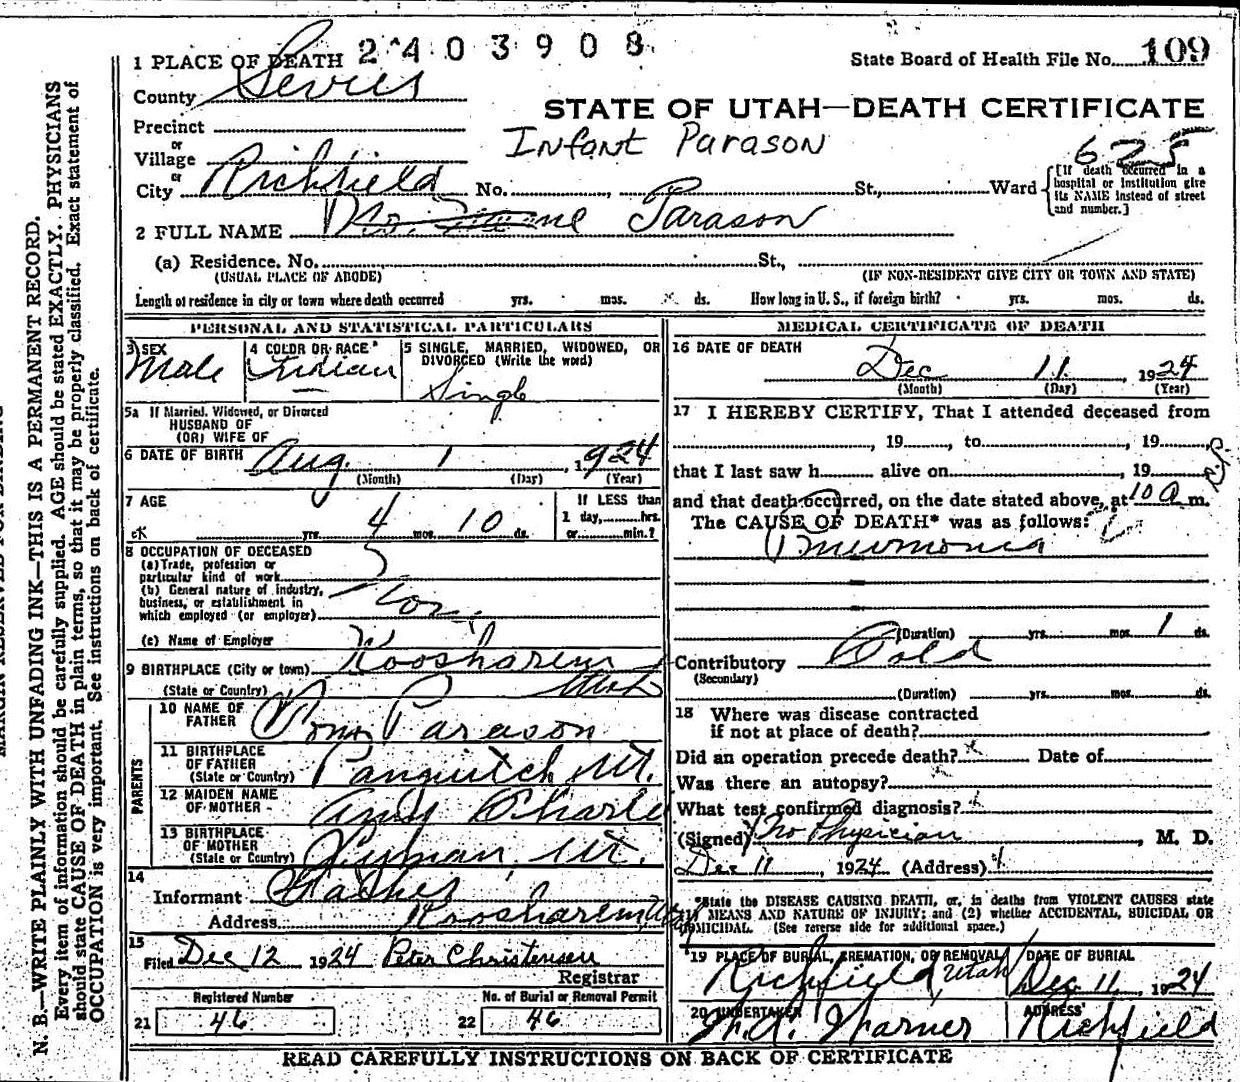 2403908
1 PLACE OF DEATH
State Board of Health File No. 109
County Sevier
STATE OF UTAH—DEATH CERTIFICATE
Precinct
or
Village
Infant Parason
625
or
City Richfield No. St., Ward
[If death occurred in a hospital or institution give its NAME instead of street and number.]
2 FULL NAME No Parason
(a) Residence. No. St.,
(USUAL PLACE OF ABODE) (IF NON-RESIDENT GIVE CITY OR TOWN AND STATE)
Length of residence in city or town where death occurred yrs. mos. ds. How long in U. S., if foreign birth? yrs. mos. ds.
PERSONAL AND STATISTICAL PARTICULARS
3 SEX
Male
4 COLOR OR RACE
Indian
5 SINGLE, MARRIED, WIDOWED, OR DIVORCED (Write the word)
Single
5a If Married, Widowed, or Divorced
HUSBAND OF
(OR) WIFE OF
6 DATE OF BIRTH Aug. 1, 1924
(Month) (Day) (Year)
7 AGE
yrs. 4 mos. 10 ds.
If LESS than
1 day, hrs.
or min.?
8 OCCUPATION OF DECEASED
(a) Trade, profession or
particular kind of work
(b) General nature of industry,
business, or establishment in
which employed (or employer)
(c) Name of Employer
9 BIRTHPLACE (City or town) Koosharem
(State or Country) Utah
PARENTS
10 NAME OF
FATHER
Parason
11 BIRTHPLACE
OF FATHER
(State or Country) Panguitch Ut.
12 MAIDEN NAME
OF MOTHER
Charle
13 BIRTHPLACE
OF MOTHER
(State or Country) Lyman, Ut.
14
Informant Father
Address Koosharem, Utah
15
Filed Dec 12 1924 Peter Christensen
Registrar
Registered Number
21 46
No. of Burial or Removal Permit
22 46
MEDICAL CERTIFICATE OF DEATH
16 DATE OF DEATH
Dec 11 1924
(Month) (Day) (Year)
17 I HEREBY CERTIFY, That I attended deceased from
, 19 , to , 19
that I last saw h alive on , 19
and that death occurred, on the date stated above, at 10 a m.
The CAUSE OF DEATH* was as follows:
Pneumonia
(Duration) yrs. mos. 1 ds.
Contributory Cold
(Secondary)
(Duration) yrs. mos. ds.
18 Where was disease contracted
if not at place of death?
Did an operation precede death? Date of
Was there an autopsy?
What test confirmed diagnosis?
(Signed) No Physician, M. D.
Dec 11, 1924 (Address)
*State the DISEASE CAUSING DEATH, or, in deaths from VIOLENT CAUSES state
(1) MEANS AND NATURE OF INJURY; and (2) whether ACCIDENTAL, SUICIDAL OR
HOMICIDAL. (See reverse side for additional space.)
19 PLACE OF BURIAL, CREMATION, OR REMOVAL
Richfield, Utah
DATE OF BURIAL
Dec 11, 1924
20 UNDERTAKER
Warner
ADDRESS
Richfield
READ CAREFULLY INSTRUCTIONS ON BACK OF CERTIFICATE
N. B.—WRITE PLAINLY WITH UNFADING INK—THIS IS A PERMANENT RECORD.
Every item of information should be carefully supplied. AGE should be stated EXACTLY. PHYSICIANS
should state CAUSE OF DEATH in plain terms, so that it may be properly classified. Exact statement of
OCCUPATION is very important. See instructions on back of certificate.